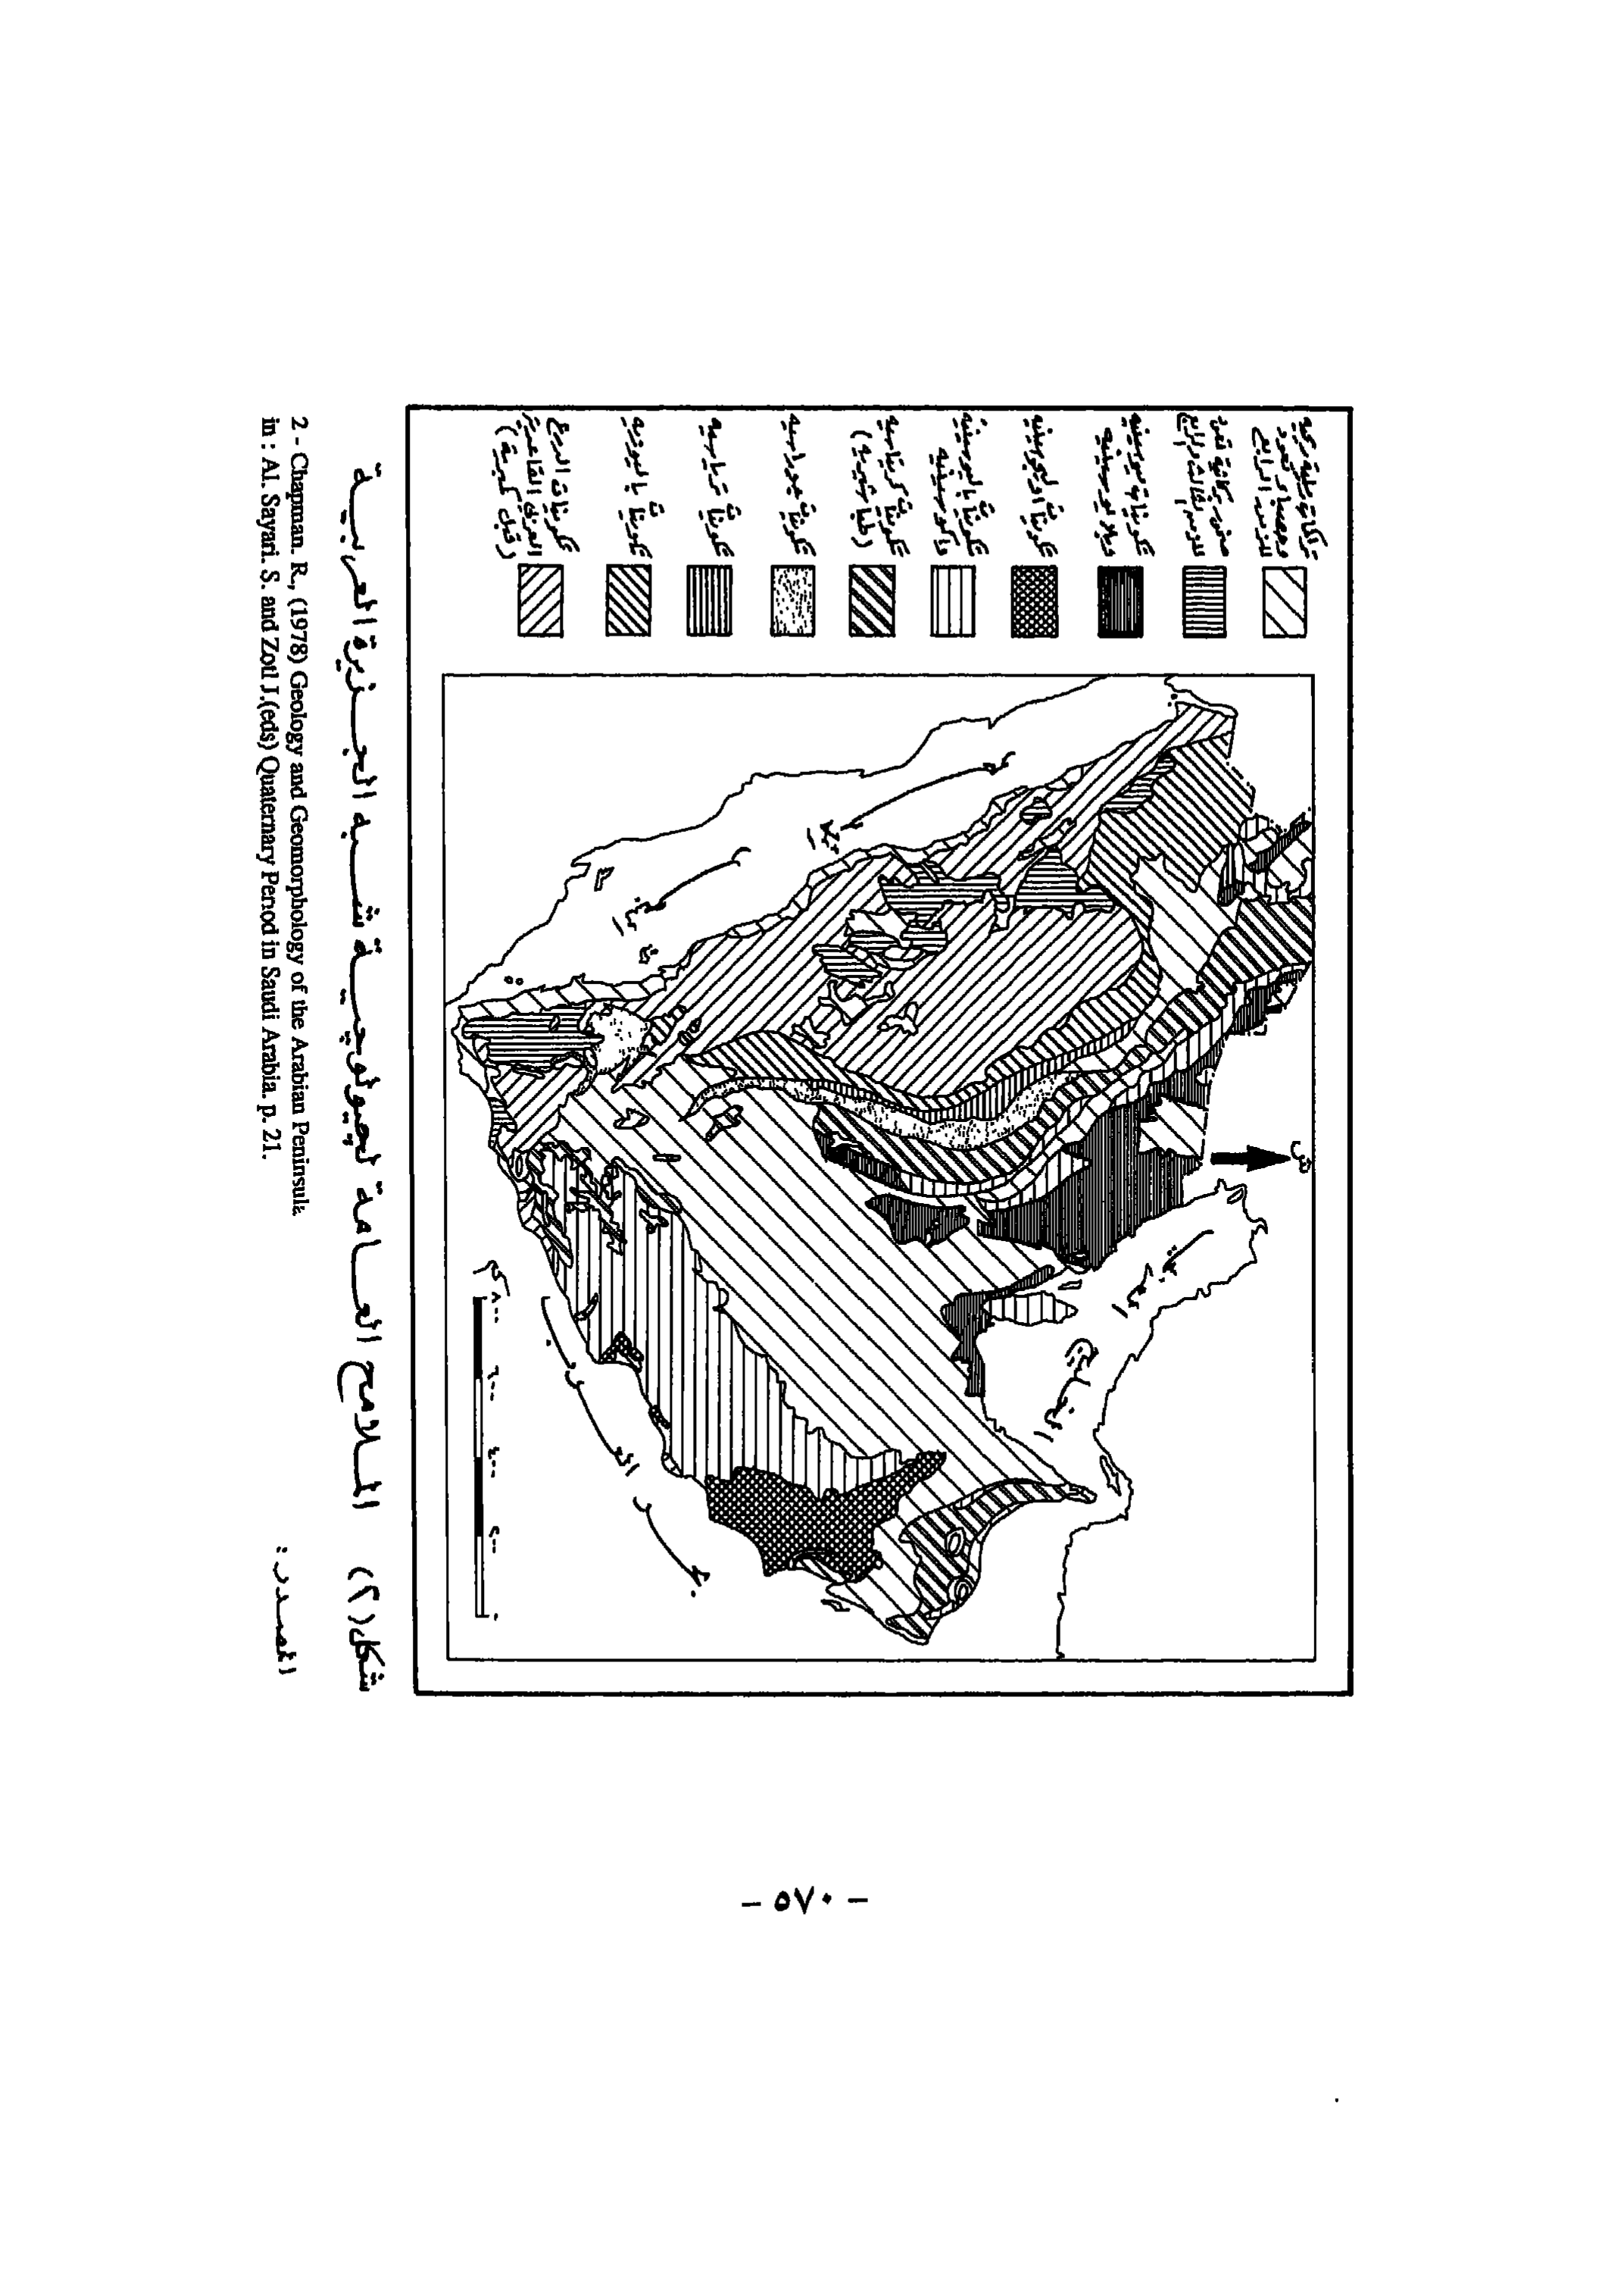 تراكمات رملية ريحية
وحصباء تعود
للزمن الرابع
صخور بركانية تعود
للزمن الثالث والرابع
تكوينات ميوسينية
وبلايوسينية
تكوينات اوليجوسينية
تكوينات باليوسينية
وايوسينية
تكوينات كريتاسية
(طباشيرية)
تكوينات جوراسية
تكوينات ترياسية
تكوينات باليوزوية
تكوينات الدرع
العربي القاعدية
(قبل كمبرية)
ش
البحر الأحمر
الخليج العربي
بحر العرب
كم ٨٠٠ ٦٠٠ ٤٠٠ ٢٠٠ ٠
شكل (٢) الملامح العامة لجيولوجية شبه الجزيرة العربية
المصدر :
2 - Chapman. R., (1978) Geology and Geomorphology of the Arabian Peninsula
in : Al. Sayari. S. and Zotl J.(eds) Quaternary Period in Saudi Arabia. p. 21.
- ٥٧٠ -